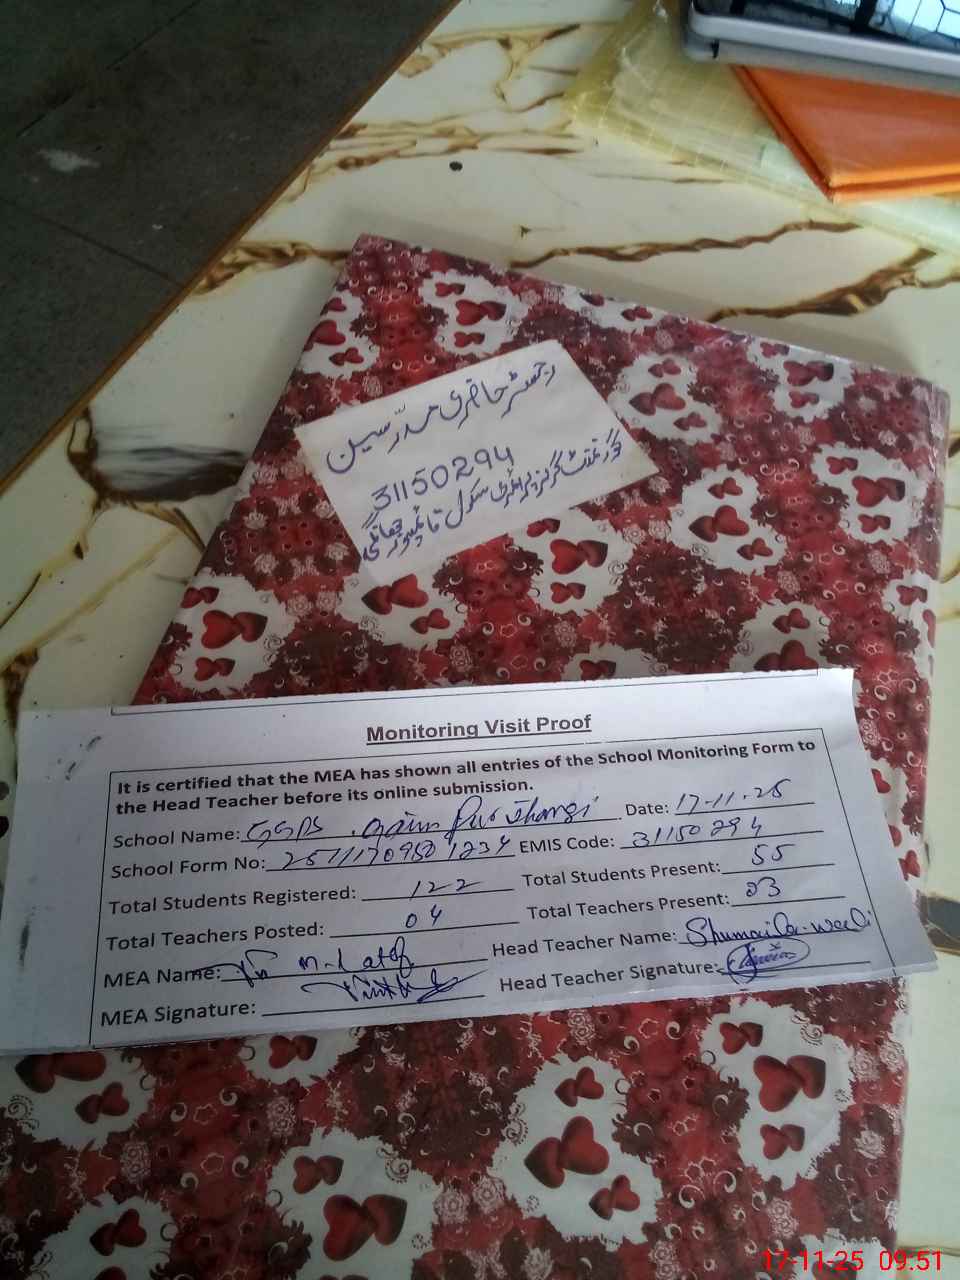 رجسٹر حاضری مدرسین
31150294
گورنمنٹ گرلز پرائمری سکول قائمپور جھانگی
Monitoring Visit Proof
It is certified that the MEA has shown all entries of the School Monitoring Form to
the Head Teacher before its online submission.
School Name: GGPS Qaim Pur Jhangi Date: 17-11-25
School Form No: EMIS Code: 31150294
Total Students Registered: 122 Total Students Present: 55
Total Teachers Posted: 04 Total Teachers Present: 03
MEA Name: Head Teacher Name: Shumaila
MEA Signature: Head Teacher Signature:
17-11-25 09.51